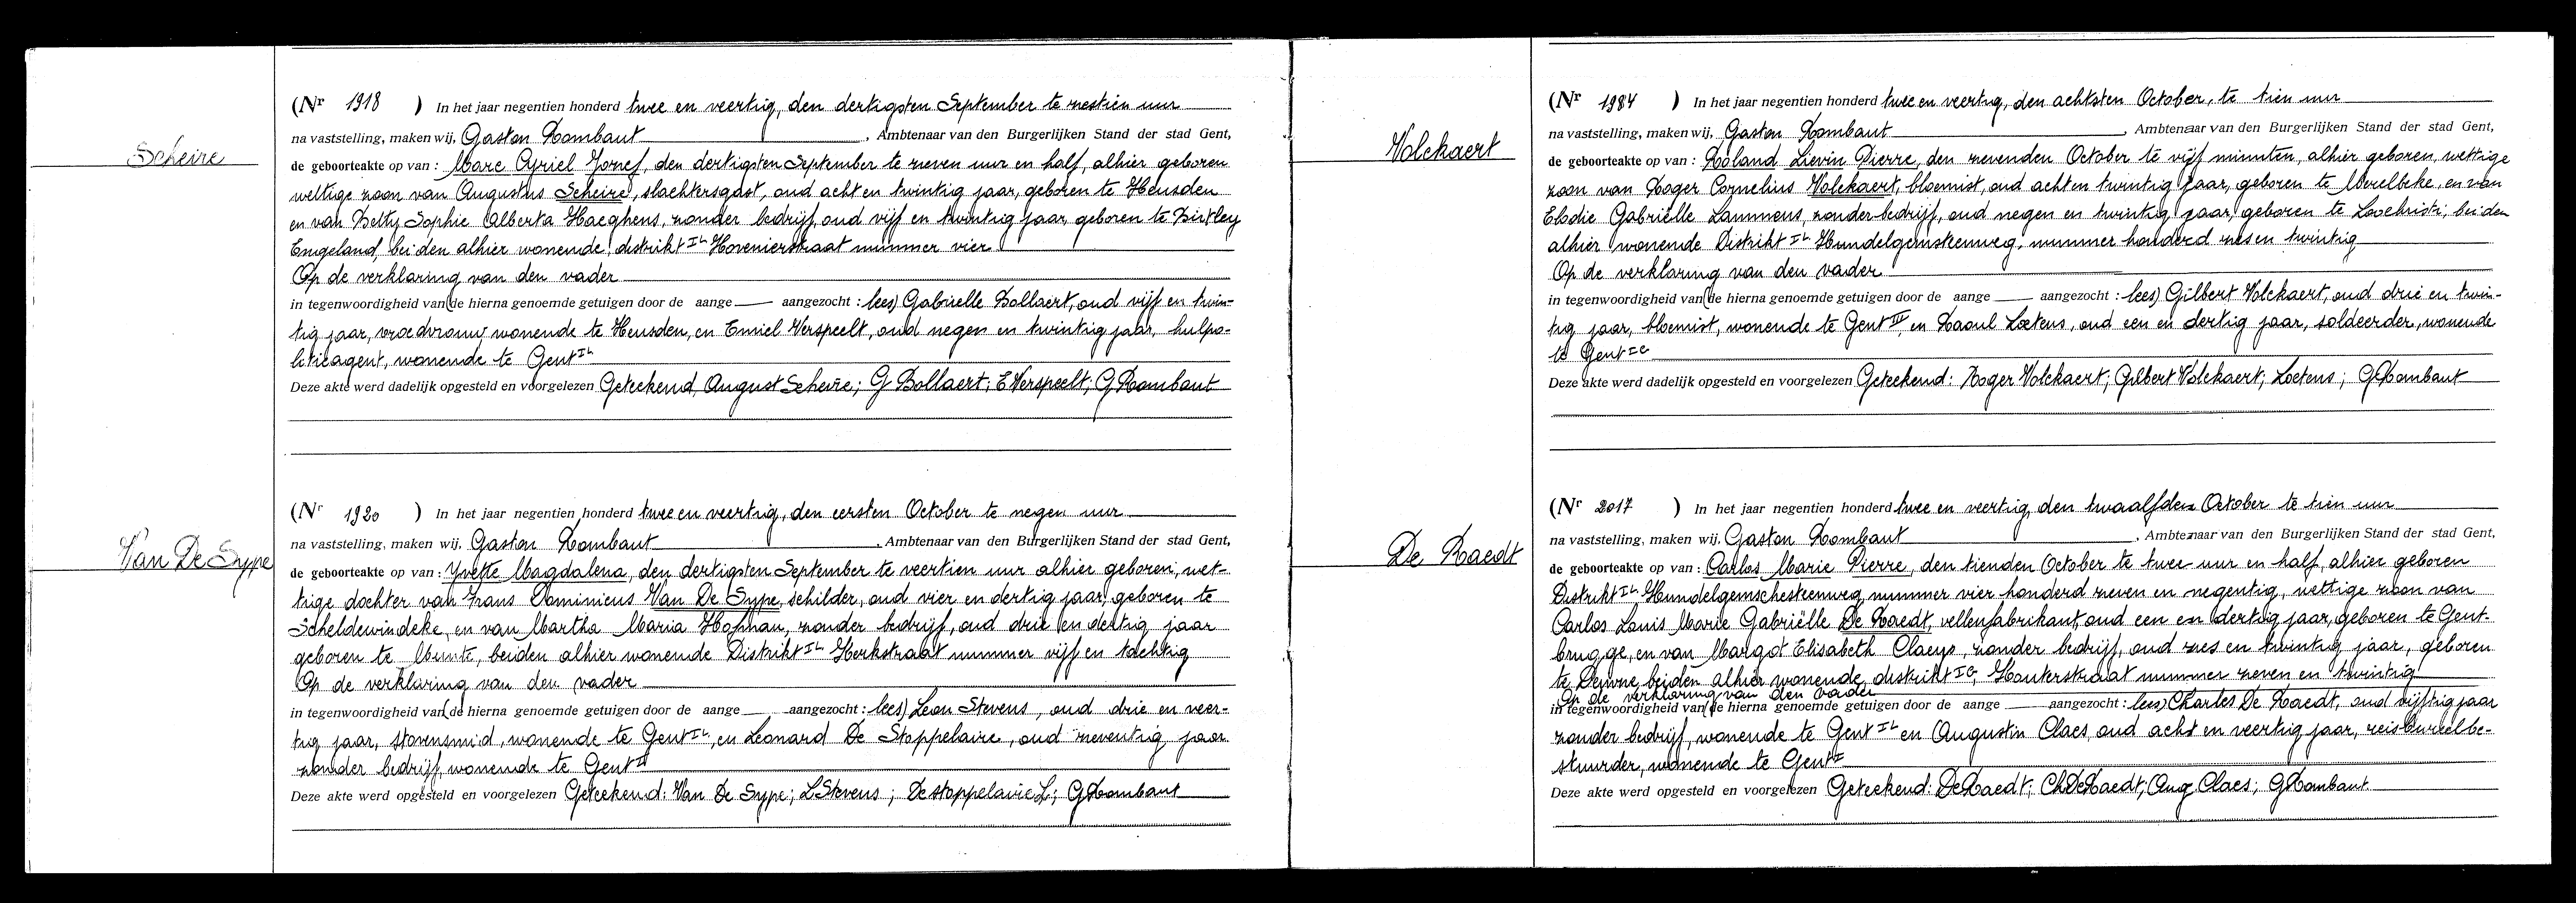 Scheire
(Nr 1918 ) In het jaar negentien honderd twee en veertig, den dertigsten September te zestien uur
na vaststelling, maken wij, Gaston Rombaut, Ambtenaar van den Burgerlijken Stand der stad Gent,
de geboorteakte op van : Marc Cyriel Jozef, den dertigsten September te zeven uur en half, alhier geboren
wettige zoon van Augustus Scheire, slachtersgast, oud acht en twintig jaar, geboren te Heusden
en van Betty Sophie Alberta Haeghens, zonder bedrijf, oud vijf en twintig jaar, geboren te Birtley
Engeland, beiden alhier wonende, distrikt IL Hovenierstraat nummer vier
Op de verklaring van den vader
in tegenwoordigheid van (de hierna genoemde getuigen door de aange aangezocht : lees) Gabrielle Bollaert, oud vijf en twin-
tig jaar, vroedvrouw wonende te Heusden, en Emiel Verspeelt, oud negen en twintig jaar, hulpo-
litieagent, wonende te Gent IL
Deze akte werd dadelijk opgesteld en voorgelezen Geteekend, August Scheire; G Bollaert; E Verspeelt; G Rombaut
Van De Sype
(Nr 1920 ) In het jaar negentien honderd twee en veertig, den eersten October te negen uur
na vaststelling, maken wij, Gaston Rombaut, Ambtenaar van den Burgerlijken Stand der stad Gent,
de geboorteakte op van : Yvette Magdalena, den dertigsten September te veertien uur alhier geboren, wet-
tige dochter van Frans Dominicus Van De Sype, schilder, oud vier en dertig jaar, geboren te
Scheldewindeke, en van Martha Maria Hofman, zonder bedrijf, oud drie en dertig jaar
geboren te Munte, beiden alhier wonende Distrikt IL Herkstraat nummer vijf en tachtig
Op de verklaring van den vader
in tegenwoordigheid van (de hierna genoemde getuigen door de aange aangezocht : lees) Leon Stevens, oud drie en veer-
tig jaar, stovensmid, wonende te Gent IL, en Leonard De Stoppelaire, oud zeventig jaar
zonder bedrijf, wonende te Gent II
Deze akte werd opgesteld en voorgelezen Geteekend: Van De Sype; L Stevens; De Stoppelaire L; G Rombaut
Volckaert
(Nr 1984 ) In het jaar negentien honderd twee en veertig, den achtsten October, te tien uur
na vaststelling, maken wij, Gaston Rombaut, Ambtenaar van den Burgerlijken Stand der stad Gent,
de geboorteakte op van : Roland Lievin Pierre, den zevenden October te vijf minuten, alhier geboren, wettige
zoon van Roger Cornelius Volckaert, bloemist, oud acht en twintig jaar, geboren te Merelbeke, en van
Elodie Gabriëlle Lammens, zonder bedrijf, oud negen en twintig jaar, geboren te Loochristi; beiden
alhier wonende Distrikt IL Hundelgemsteenweg, nummer honderd zes en twintig
Op de verklaring van den vader
in tegenwoordigheid van (de hierna genoemde getuigen door de aange aangezocht : lees) Gilbert Volckaert, oud drie en twin-
tig jaar, bloemist, wonende te Gent IV en Raoul Loetens, oud een en dertig jaar, soldeerder, wonende
te Gent IC
Deze akte werd dadelijk opgesteld en voorgelezen Geteekend: Roger Volckaert; Gilbert Volckaert; Loetens; G Rombaut
De Raedt
(Nr 2017 ) In het jaar negentien honderd twee en veertig, den twaalfden October te tien uur
na vaststelling, maken wij, Gaston Rombaut, Ambtenaar van den Burgerlijken Stand der stad Gent,
de geboorteakte op van : Carlos Marie Pierre, den tienden October te twee uur en half, alhier geboren
Distrikt IL Hundelgemschesteenweg nummer vier honderd zeven en negentig, wettige zoon van
Carlos Louis Marie Gabriëlle De Raedt, vellenfabrikant, oud een en dertig jaar, geboren te Gent-
brugge, en van Margot Elisabeth Claeys, zonder bedrijf, oud zes en twintig jaar, geboren
te Deinze, beiden alhier wonende, distrikt IC, Houterstraat nummer zeven en twintig
Op de verklaring van den vader
in tegenwoordigheid van (de hierna genoemde getuigen door de aange aangezocht : lees) Charles De Raedt, oud vijftig jaar
zonder bedrijf, wonende te Gent IL en Augustin Claes, oud acht en veertig jaar, reisbureelbe-
stuurder, wonende te Gent I
Deze akte werd opgesteld en voorgelezen Geteekend: De Raedt; Ch De Raedt; Aug Claes; G Rombaut